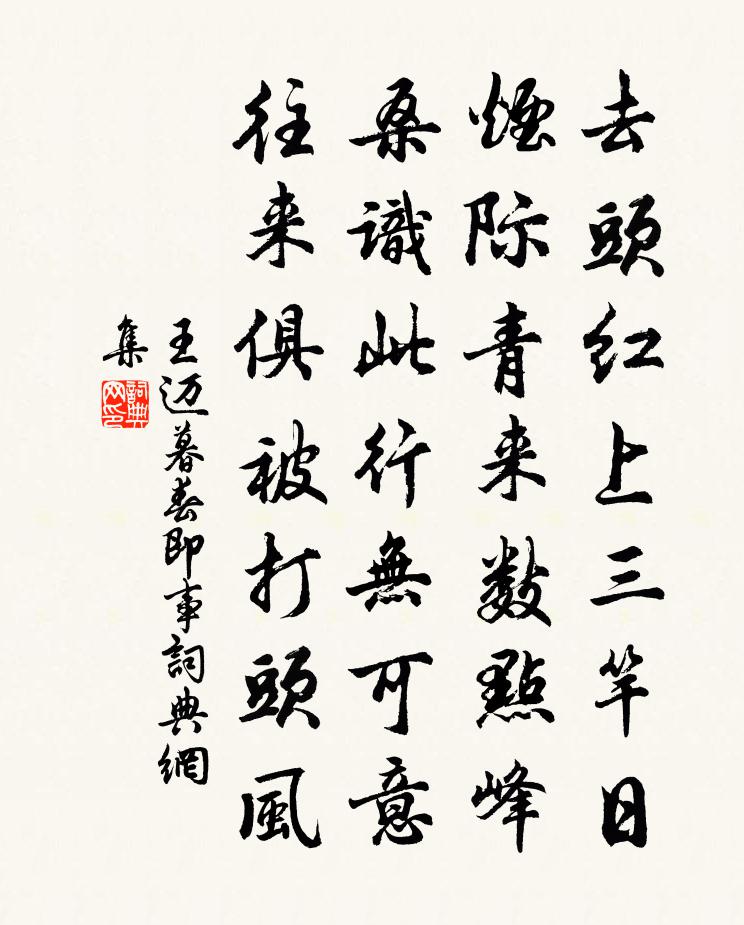 去頭紅上三竿日
煙際青来數點峰
桑識此行無可意
往来俱被打頭風
王迈暮春即事詞典網
集
詞典
网印